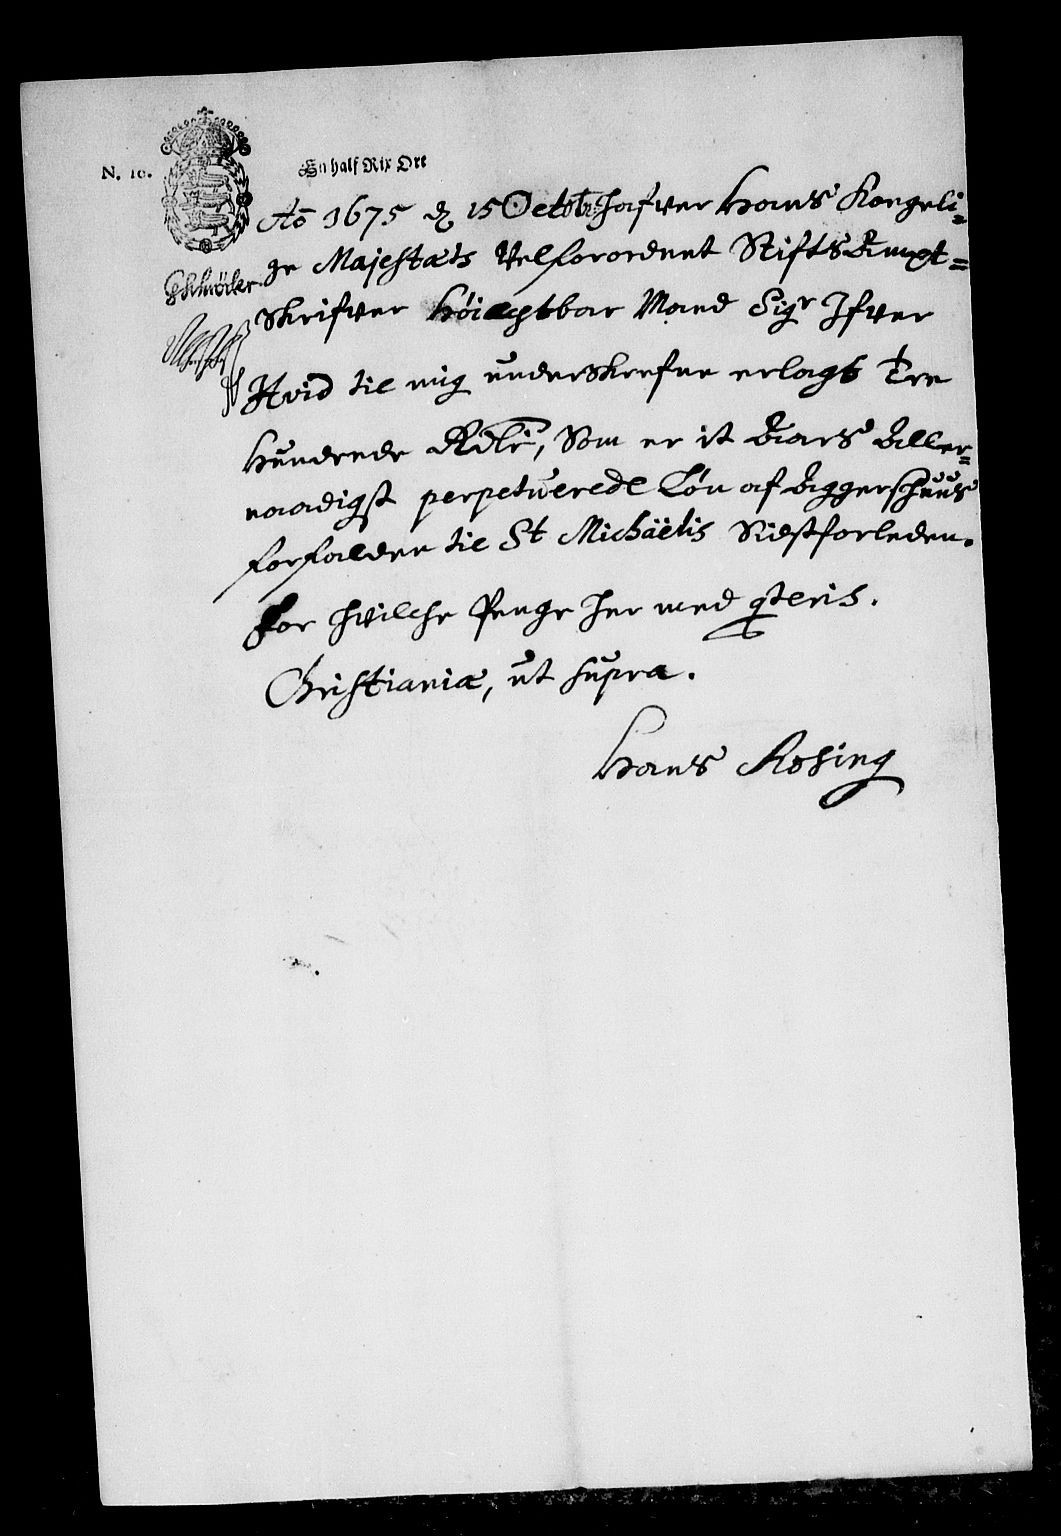 N. 10.
En half Rix Ort
Ao 1675 d 15 Octobr hafver Hans Kongeli=
ge Majestæts Velforordnet StiftsAmpt=
skrifver Høiagtbar Mand Sigr Ifver
Hvid til mig underskrefne erlagt Tre
Hundrede Rdlr, Som er it Aars Aller=
naadigst perpetuerede Løn af Aggershuus
forfalden til St Michaëlis Sidstforleden.
For hvilche Penge her med qteris.
Christianiæ, ut supra.
Hans Rosing